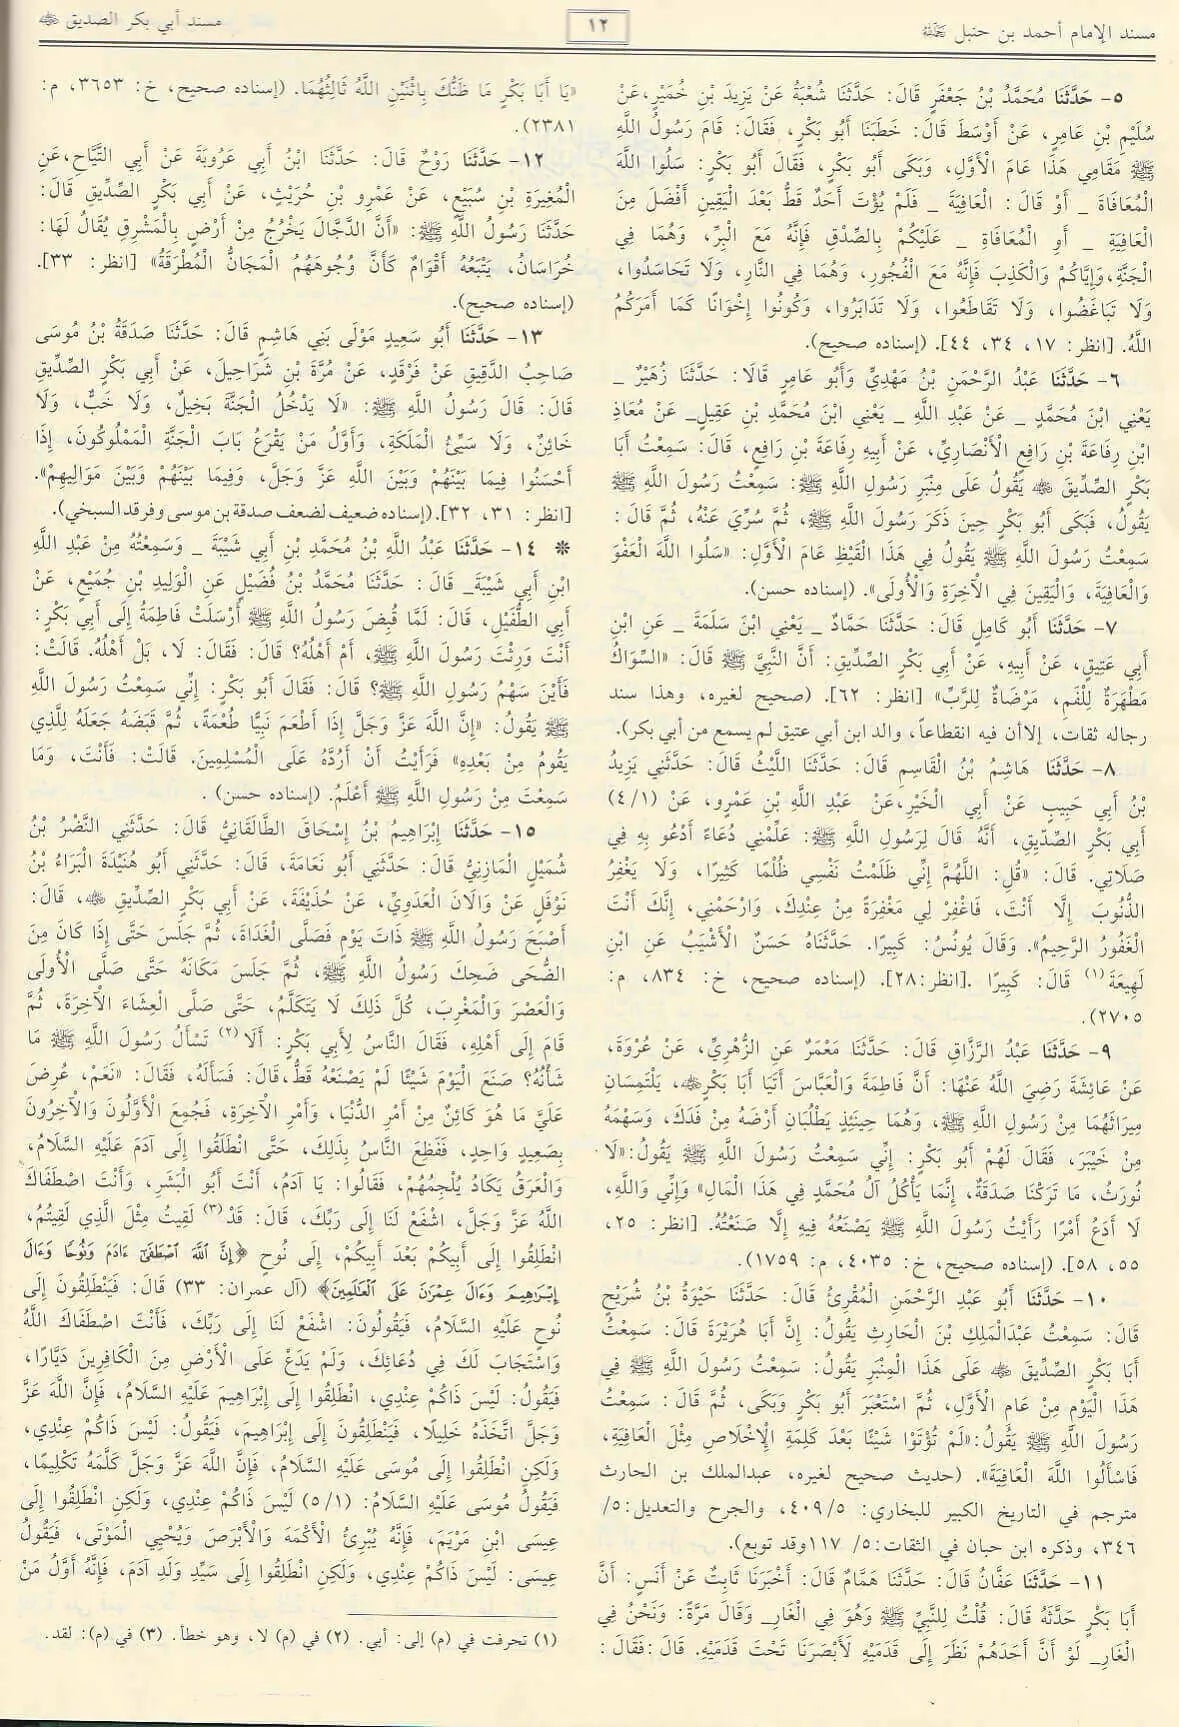 مسند الإمام أحمد بن حنبل رحمه الله
١٢
مسند أبي بكر الصديق ﷺ
٥- حَدَّثَنَا مُحَمَّدُ بْنُ جَعْفَرٍ قَالَ: حَدَّثَنَا شُعْبَةُ عَنْ يَزِيدَ بْنِ خُمَيْرٍ،عَنْ
سُلَيْمِ بْنِ عَامِرٍ، عَنْ أَوْسَطَ قَالَ: خَطَبَنَا أَبُو بَكْرٍ، فَقَالَ: قَامَ رَسُولُ اللَّهِ
ﷺ مَقَامِي هَذَا عَامَ الْأَوَّلِ، وَبَكَى أَبُو بَكْرٍ، فَقَالَ أَبُو بَكْرٍ: سَلُوا اللَّهَ
الْمُعَافَاةَ _ أَوْ قَالَ: الْعَافِيَةَ _ فَلَمْ يُؤْتَ أَحَدٌ قَطُّ بَعْدَ الْيَقِينِ أَفْضَلَ مِنَ
الْعَافِيَةِ _ أَوِ الْمُعَافَاةِ _ عَلَيْكُمْ بِالصِّدْقِ فَإِنَّهُ مَعَ الْبِرِّ، وَهُمَا فِي
الْجَنَّةِ،وَإِيَّاكُمْ وَالْكَذِبَ فَإِنَّهُ مَعَ الْفُجُورِ، وَهُمَا فِي النَّارِ، وَلَا تَحَاسَدُوا،
وَلَا تَبَاغَضُوا، وَلَا تَقَاطَعُوا، وَلَا تَدَابَرُوا، وَكُونُوا إِخْوَانًا كَمَا أَمَرَكُمُ
اللَّهُ. [انظر: ١٧، ٣٤، ٤٤]. (إسناده صحيح).
٦- حَدَّثَنَا عَبْدُ الرَّحْمَنِ بْنُ مَهْدِيٍّ وَأَبُو عَامِرٍ قَالَا: حَدَّثَنَا زُهَيْرٌ _
يَعْنِي ابْنَ مُحَمَّدٍ _ عَنْ عَبْدِ اللَّهِ _ يَعْنِي ابْنَ مُحَمَّدِ بْنِ عَقِيلٍ_ عَنْ مُعَاذِ
ابْنِ رِفَاعَةَ بْنِ رَافِعٍ الْأَنْصَارِيِّ، عَنْ أَبِيهِ رِفَاعَةَ بْنِ رَافِعٍ، قَالَ: سَمِعْتُ أَبَا
بَكْرٍ الصِّدِّيقَ ﷺ يَقُولُ عَلَى مِنْبَرِ رَسُولِ اللَّهِ ﷺ: سَمِعْتُ رَسُولَ اللَّهِ ﷺ
يَقُولُ، فَبَكَى أَبُو بَكْرٍ حِينَ ذَكَرَ رَسُولَ اللَّهِ ﷺ، ثُمَّ سُرِّيَ عَنْهُ، ثُمَّ قَالَ:
سَمِعْتُ رَسُولَ اللَّهِ ﷺ يَقُولُ فِي هَذَا الْقَيْظِ عَامَ الْأَوَّلِ: «سَلُوا اللَّهَ الْعَفْوَ
وَالْعَافِيَةَ، وَالْيَقِينَ فِي الْآخِرَةِ وَالْأُولَى». (إسناده حسن).
٧- حَدَّثَنَا أَبُو كَامِلٍ قَالَ: حَدَّثَنَا حَمَّادٌ _ يَعْنِي ابْنَ سَلَمَةَ _ عَنِ ابْنِ
أَبِي عَتِيقٍ، عَنْ أَبِيهِ، عَنْ أَبِي بَكْرٍ الصِّدِّيقِ: أَنَّ النَّبِيَّ ﷺ قَالَ: «السِّوَاكُ
مَطْهَرَةٌ لِلْفَمِ، مَرْضَاةٌ لِلرَّبِّ» [انظر: ٦٢]. (صحيح لغيره، وهذا سند
رجاله ثقات، إلاأن فيه انقطاعاً، والد ابن أبي عتيق لم يسمع من أبي بكر).
٨- حَدَّثَنَا هَاشِمُ بْنُ الْقَاسِمِ قَالَ: حَدَّثَنَا اللَّيْثُ قَالَ: حَدَّثَنِي يَزِيدُ
بْنُ أَبِي حَبِيبٍ عَنْ أَبِي الْخَيْرِ،عَنْ عَبْدِ اللَّهِ بْنِ عَمْرٍو، عَنْ (٤/١)
أَبِي بَكْرٍ الصِّدِّيقِ، أَنَّهُ قَالَ لِرَسُولِ اللَّهِ ﷺ: عَلِّمْنِي دُعَاءً أَدْعُو بِهِ فِي
صَلَاتِي. قَالَ: «قُلِ: اللَّهُمَّ إِنِّي ظَلَمْتُ نَفْسِي ظُلْمًا كَثِيرًا، وَلَا يَغْفِرُ
الذُّنُوبَ إِلَّا أَنْتَ، فَاغْفِرْ لِي مَغْفِرَةً مِنْ عِنْدِكَ، وَارْحَمْنِي، إِنَّكَ أَنْتَ
الْغَفُورُ الرَّحِيمُ». وَقَالَ يُونُسُ: كَبِيرًا. حَدَّثَنَاهُ حَسَنٌ الْأَشْيَبُ عَنِ ابْنِ
لَهِيعَةَ (١) قَالَ: كَبِيرًا .[انظر:٢٨]. (إسناده صحيح، خ: ٨٣٤، م:
٢٧٠٥).
٩- حَدَّثَنَا عَبْدُ الرَّزَّاقِ قَالَ: حَدَّثَنَا مَعْمَرٌ عَنِ الزُّهْرِيِّ، عَنْ عُرْوَةَ،
عَنْ عَائِشَةَ رَضِيَ اللَّهُ عَنْهَا: أَنَّ فَاطِمَةَ وَالْعَبَّاسَ أَتَيَا أَبَا بَكْرٍﷺ، يَلْتَمِسَانِ
مِيرَاثَهُمَا مِنْ رَسُولِ اللَّهِ ﷺ، وَهُمَا حِينَئِذٍ يَطْلُبَانِ أَرْضَهُ مِنْ فَدَكَ، وَسَهْمَهُ
مِنْ خَيْبَرَ، فَقَالَ لَهُمْ أَبُو بَكْرٍ: إِنِّي سَمِعْتُ رَسُولَ اللَّهِ ﷺ يَقُولُ:«لَا
نُورَثُ، مَا تَرَكْنَا صَدَقَةٌ، إِنَّمَا يَأْكُلُ آلُ مُحَمَّدٍ فِي هَذَا الْمَالِ» وَإِنِّي وَاللَّهِ،
لَا أَدَعُ أَمْرًا رَأَيْتُ رَسُولَ اللَّهِ ﷺ يَصْنَعُهُ فِيهِ إِلَّا صَنَعْتُهُ. [انظر: ٢٥،
٥٥، ٥٨]. (إسناده صحيح، خ: ٤٠٣٥، م: ١٧٥٩).
١٠- حَدَّثَنَا أَبُو عَبْدِ الرَّحْمَنِ الْمُقْرِئُ قَالَ: حَدَّثَنَا حَيْوَةُ بْنُ شُرَيْحٍ
قَالَ: سَمِعْتُ عَبْدَالْمَلِكِ بْنَ الْحَارِثِ يَقُولُ: إِنَّ أَبَا هُرَيْرَةَ قَالَ: سَمِعْتُ
أَبَا بَكْرٍ الصِّدِّيقَ ﷺ عَلَى هَذَا الْمِنْبَرِ يَقُولُ: سَمِعْتُ رَسُولَ اللَّهِ ﷺ فِي
هَذَا الْيَوْمِ مِنْ عَامِ الْأَوَّلِ، ثُمَّ اسْتَعْبَرَ أَبُو بَكْرٍ وَبَكَى، ثُمَّ قَالَ: سَمِعْتُ
رَسُولَ اللَّهِ ﷺ يَقُولُ:«لَمْ تُؤْتَوْا شَيْئًا بَعْدَ كَلِمَةِ الْإِخْلَاصِ مِثْلَ الْعَافِيَةِ،
فَاسْأَلُوا اللَّهَ الْعَافِيَةَ». (حديث صحيح لغيره، عبدالملك بن الحارث
مترجم في التاريخ الكبير للبخاري: ٥/ ٤٠٩، والجرح والتعديل:٥/
٣٤٦، وذكره ابن حبان في الثقات:٥/ ١١٧وقد توبع).
١١- حَدَّثَنَا عَفَّانُ قَالَ: حَدَّثَنَا هَمَّامٌ قَالَ: أَخْبَرَنَا ثَابِتٌ عَنْ أَنَسٍ: أَنَّ
أَبَا بَكْرٍ حَدَّثَهُ قَالَ: قُلْتُ لِلنَّبِيِّ ﷺ وَهُوَ فِي الْغَارِ_ وَقَالَ مَرَّةً: وَنَحْنُ فِي
الْغَارِ_ لَوْ أَنَّ أَحَدَهُمْ نَظَرَ إِلَى قَدَمَيْهِ لَأَبْصَرَنَا تَحْتَ قَدَمَيْهِ. قَالَ:فَقَالَ:
«يَا أَبَا بَكْرٍ مَا ظَنُّكَ بِاثْنَيْنِ اللَّهُ ثَالِثُهُمَا. (إسناده صحيح، خ: ٣٦٥٣، م:
٢٣٨١).
١٢- حَدَّثَنَا رَوْحٌ قَالَ: حَدَّثَنَا ابْنُ أَبِي عَرُوبَةَ عَنْ أَبِي التَّيَّاحِ،عَنِ
الْمُغِيرَةِ بْنِ سُبَيْعٍ، عَنْ عَمْرِو بْنِ حُرَيْثٍ، عَنْ أَبِي بَكْرٍ الصِّدِّيقِ قَالَ:
حَدَّثَنَا رَسُولُ اللَّهِ ﷺ: «أَنَّ الدَّجَّالَ يَخْرُجُ مِنْ أَرْضٍ بِالْمَشْرِقِ يُقَالُ لَهَا:
خُرَاسَانُ، يَتْبَعُهُ أَقْوَامٌ كَأَنَّ وُجُوهَهُمُ الْمَجَانُّ الْمُطْرَقَةُ» [انظر: ٣٣].
(إسناده صحيح).
١٣- حَدَّثَنَا أَبُو سَعِيدٍ مَوْلَى بَنِي هَاشِمٍ قَالَ: حَدَّثَنَا صَدَقَةُ بْنُ مُوسَى
صَاحِبُ الدَّقِيقِ عَنْ فَرْقَدٍ، عَنْ مُرَّةَ بْنِ شَرَاحِيلَ، عَنْ أَبِي بَكْرٍ الصِّدِّيقِ
قَالَ: قَالَ رَسُولُ اللَّهِ ﷺ: «لَا يَدْخُلُ الْجَنَّةَ بَخِيلٌ، وَلَا خَبٌّ، وَلَا
خَائِنٌ، وَلَا سَيِّئُ الْمَلَكَةِ، وَأَوَّلُ مَنْ يَقْرَعُ بَابَ الْجَنَّةِ الْمَمْلُوكُونَ، إِذَا
أَحْسَنُوا فِيمَا بَيْنَهُمْ وَبَيْنَ اللَّهِ عَزَّ وَجَلَّ، وَفِيمَا بَيْنَهُمْ وَبَيْنَ مَوَالِيهِمْ».
[انظر: ٣١، ٣٢]. (إسناده ضعيف لضعف صدقة بن موسى وفرقد السبخي).
* ١٤- حَدَّثَنَا عَبْدُ اللَّهِ بْنُ مُحَمَّدِ بْنِ أَبِي شَيْبَةَ _ وَسَمِعْتُهُ مِنْ عَبْدِ اللَّهِ
ابْنِ أَبِي شَيْبَةَ_ قَالَ: حَدَّثَنَا مُحَمَّدُ بْنُ فُضَيْلٍ عَنِ الْوَلِيدِ بْنِ جُمَيْعٍ، عَنْ
أَبِي الطُّفَيْلِ، قَالَ: لَمَّا قُبِضَ رَسُولُ اللَّهِ ﷺ أَرْسَلَتْ فَاطِمَةُ إِلَى أَبِي بَكْرٍ:
أَنْتَ وَرِثْتَ رَسُولَ اللَّهِ ﷺ، أَمْ أَهْلُهُ؟ قَالَ: فَقَالَ: لَا، بَلْ أَهْلُهُ. قَالَتْ:
فَأَيْنَ سَهْمُ رَسُولِ اللَّهِ ﷺ؟ قَالَ: فَقَالَ أَبُو بَكْرٍ: إِنِّي سَمِعْتُ رَسُولَ اللَّهِ
ﷺ يَقُولُ: «إِنَّ اللَّهَ عَزَّ وَجَلَّ إِذَا أَطْعَمَ نَبِيًّا طُعْمَةً، ثُمَّ قَبَضَهُ جَعَلَهُ لِلَّذِي
يَقُومُ مِنْ بَعْدِهِ» فَرَأَيْتُ أَنْ أَرُدَّهُ عَلَى الْمُسْلِمِينَ. قَالَتْ: فَأَنْتَ، وَمَا
سَمِعْتَ مِنْ رَسُولِ اللَّهِ ﷺ أَعْلَمُ. (إسناده حسن) .
١٥- حَدَّثَنَا إِبْرَاهِيمُ بْنُ إِسْحَاقَ الطَّالَقَانِيُّ قَالَ: حَدَّثَنِي النَّضْرُ بْنُ
شُمَيْلٍ الْمَازِنِيُّ قَالَ: حَدَّثَنِي أَبُو نَعَامَةَ، قَالَ: حَدَّثَنِي أَبُو هُنَيْدَةَ الْبَرَاءُ بْنُ
نَوْفَلٍ عَنْ وَالَانَ الْعَدَوِيِّ، عَنْ حُذَيْفَةَ، عَنْ أَبِي بَكْرٍ الصِّدِّيقِ ﷺ، قَالَ:
أَصْبَحَ رَسُولُ اللَّهِ ﷺ ذَاتَ يَوْمٍ فَصَلَّى الْغَدَاةَ، ثُمَّ جَلَسَ حَتَّى إِذَا كَانَ مِنَ
الضُّحَى ضَحِكَ رَسُولُ اللَّهِ ﷺ، ثُمَّ جَلَسَ مَكَانَهُ حَتَّى صَلَّى الْأُولَى
وَالْعَصْرَ وَالْمَغْرِبَ، كُلُّ ذَلِكَ لَا يَتَكَلَّمُ، حَتَّى صَلَّى الْعِشَاءَ الْآخِرَةَ، ثُمَّ
قَامَ إِلَى أَهْلِهِ، فَقَالَ النَّاسُ لِأَبِي بَكْرٍ: أَلَا (٢) تَسْأَلُ رَسُولَ اللَّهِ ﷺ مَا
شَأْنُهُ؟ صَنَعَ الْيَوْمَ شَيْئًا لَمْ يَصْنَعْهُ قَطُّ،قَالَ: فَسَأَلَهُ، فَقَالَ: «نَعَمْ، عُرِضَ
عَلَيَّ مَا هُوَ كَائِنٌ مِنْ أَمْرِ الدُّنْيَا، وَأَمْرِ الْآخِرَةِ، فَجُمِعَ الْأَوَّلُونَ وَالْآخِرُونَ
بِصَعِيدٍ وَاحِدٍ، فَفَظِعَ النَّاسُ بِذَلِكَ، حَتَّى انْطَلَقُوا إِلَى آدَمَ عَلَيْهِ السَّلَامُ،
وَالْعَرَقُ يَكَادُ يُلْجِمُهُمْ، فَقَالُوا: يَا آدَمُ، أَنْتَ أَبُو الْبَشَرِ، وَأَنْتَ اصْطَفَاكَ
اللَّهُ عَزَّ وَجَلَّ، اشْفَعْ لَنَا إِلَى رَبِّكَ، قَالَ: قَدْ (٣) لَقِيتُ مِثْلَ الَّذِي لَقِيتُمُ،
انْطَلِقُوا إِلَى أَبِيكُمْ بَعْدَ أَبِيكُمْ، إِلَى نُوحٍ ﴿إِنَّ ٱللَّهَ ٱصْطَفَىٰٓ ءَادَمَ وَنُوحًا وَءَالَ
إِبْرَٰهِيمَ وَءَالَ عِمْرَٰنَ عَلَى ٱلْعَٰلَمِينَ﴾ (آل عمران: ٣٣) قَالَ: فَيَنْطَلِقُونَ إِلَى
نُوحٍ عَلَيْهِ السَّلَامُ، فَيَقُولُونَ: اشْفَعْ لَنَا إِلَى رَبِّكَ، فَأَنْتَ اصْطَفَاكَ اللَّهُ
وَاسْتَجَابَ لَكَ فِي دُعَائِكَ، وَلَمْ يَدَعْ عَلَى الْأَرْضِ مِنَ الْكَافِرِينَ دَيَّارًا،
فَيَقُولُ: لَيْسَ ذَاكُمْ عِنْدِي، انْطَلِقُوا إِلَى إِبْرَاهِيمَ عَلَيْهِ السَّلَامُ، فَإِنَّ اللَّهَ عَزَّ
وَجَلَّ اتَّخَذَهُ خَلِيلًا، فَيَنْطَلِقُونَ إِلَى إِبْرَاهِيمَ، فَيَقُولُ: لَيْسَ ذَاكُمْ عِنْدِي،
وَلَكِنِ انْطَلِقُوا إِلَى مُوسَى عَلَيْهِ السَّلَامُ، فَإِنَّ اللَّهَ عَزَّ وَجَلَّ كَلَّمَهُ تَكْلِيمًا،
فَيَقُولُ مُوسَى عَلَيْهِ السَّلَامُ: (٥/١) لَيْسَ ذَاكُمْ عِنْدِي، وَلَكِنِ انْطَلِقُوا إِلَى
عِيسَى ابْنِ مَرْيَمَ، فَإِنَّهُ يُبْرِئُ الْأَكْمَهَ وَالْأَبْرَصَ وَيُحْيِي الْمَوْتَى، فَيَقُولُ
عِيسَى: لَيْسَ ذَاكُمْ عِنْدِي، وَلَكِنِ انْطَلِقُوا إِلَى سَيِّدِ وَلَدِ آدَمَ، فَإِنَّهُ أَوَّلُ مَنْ
(١) تحرفت في (م) إلى: أبي. (٢) في (م) لا، وهو خطأ. (٣) في (م): لقد.